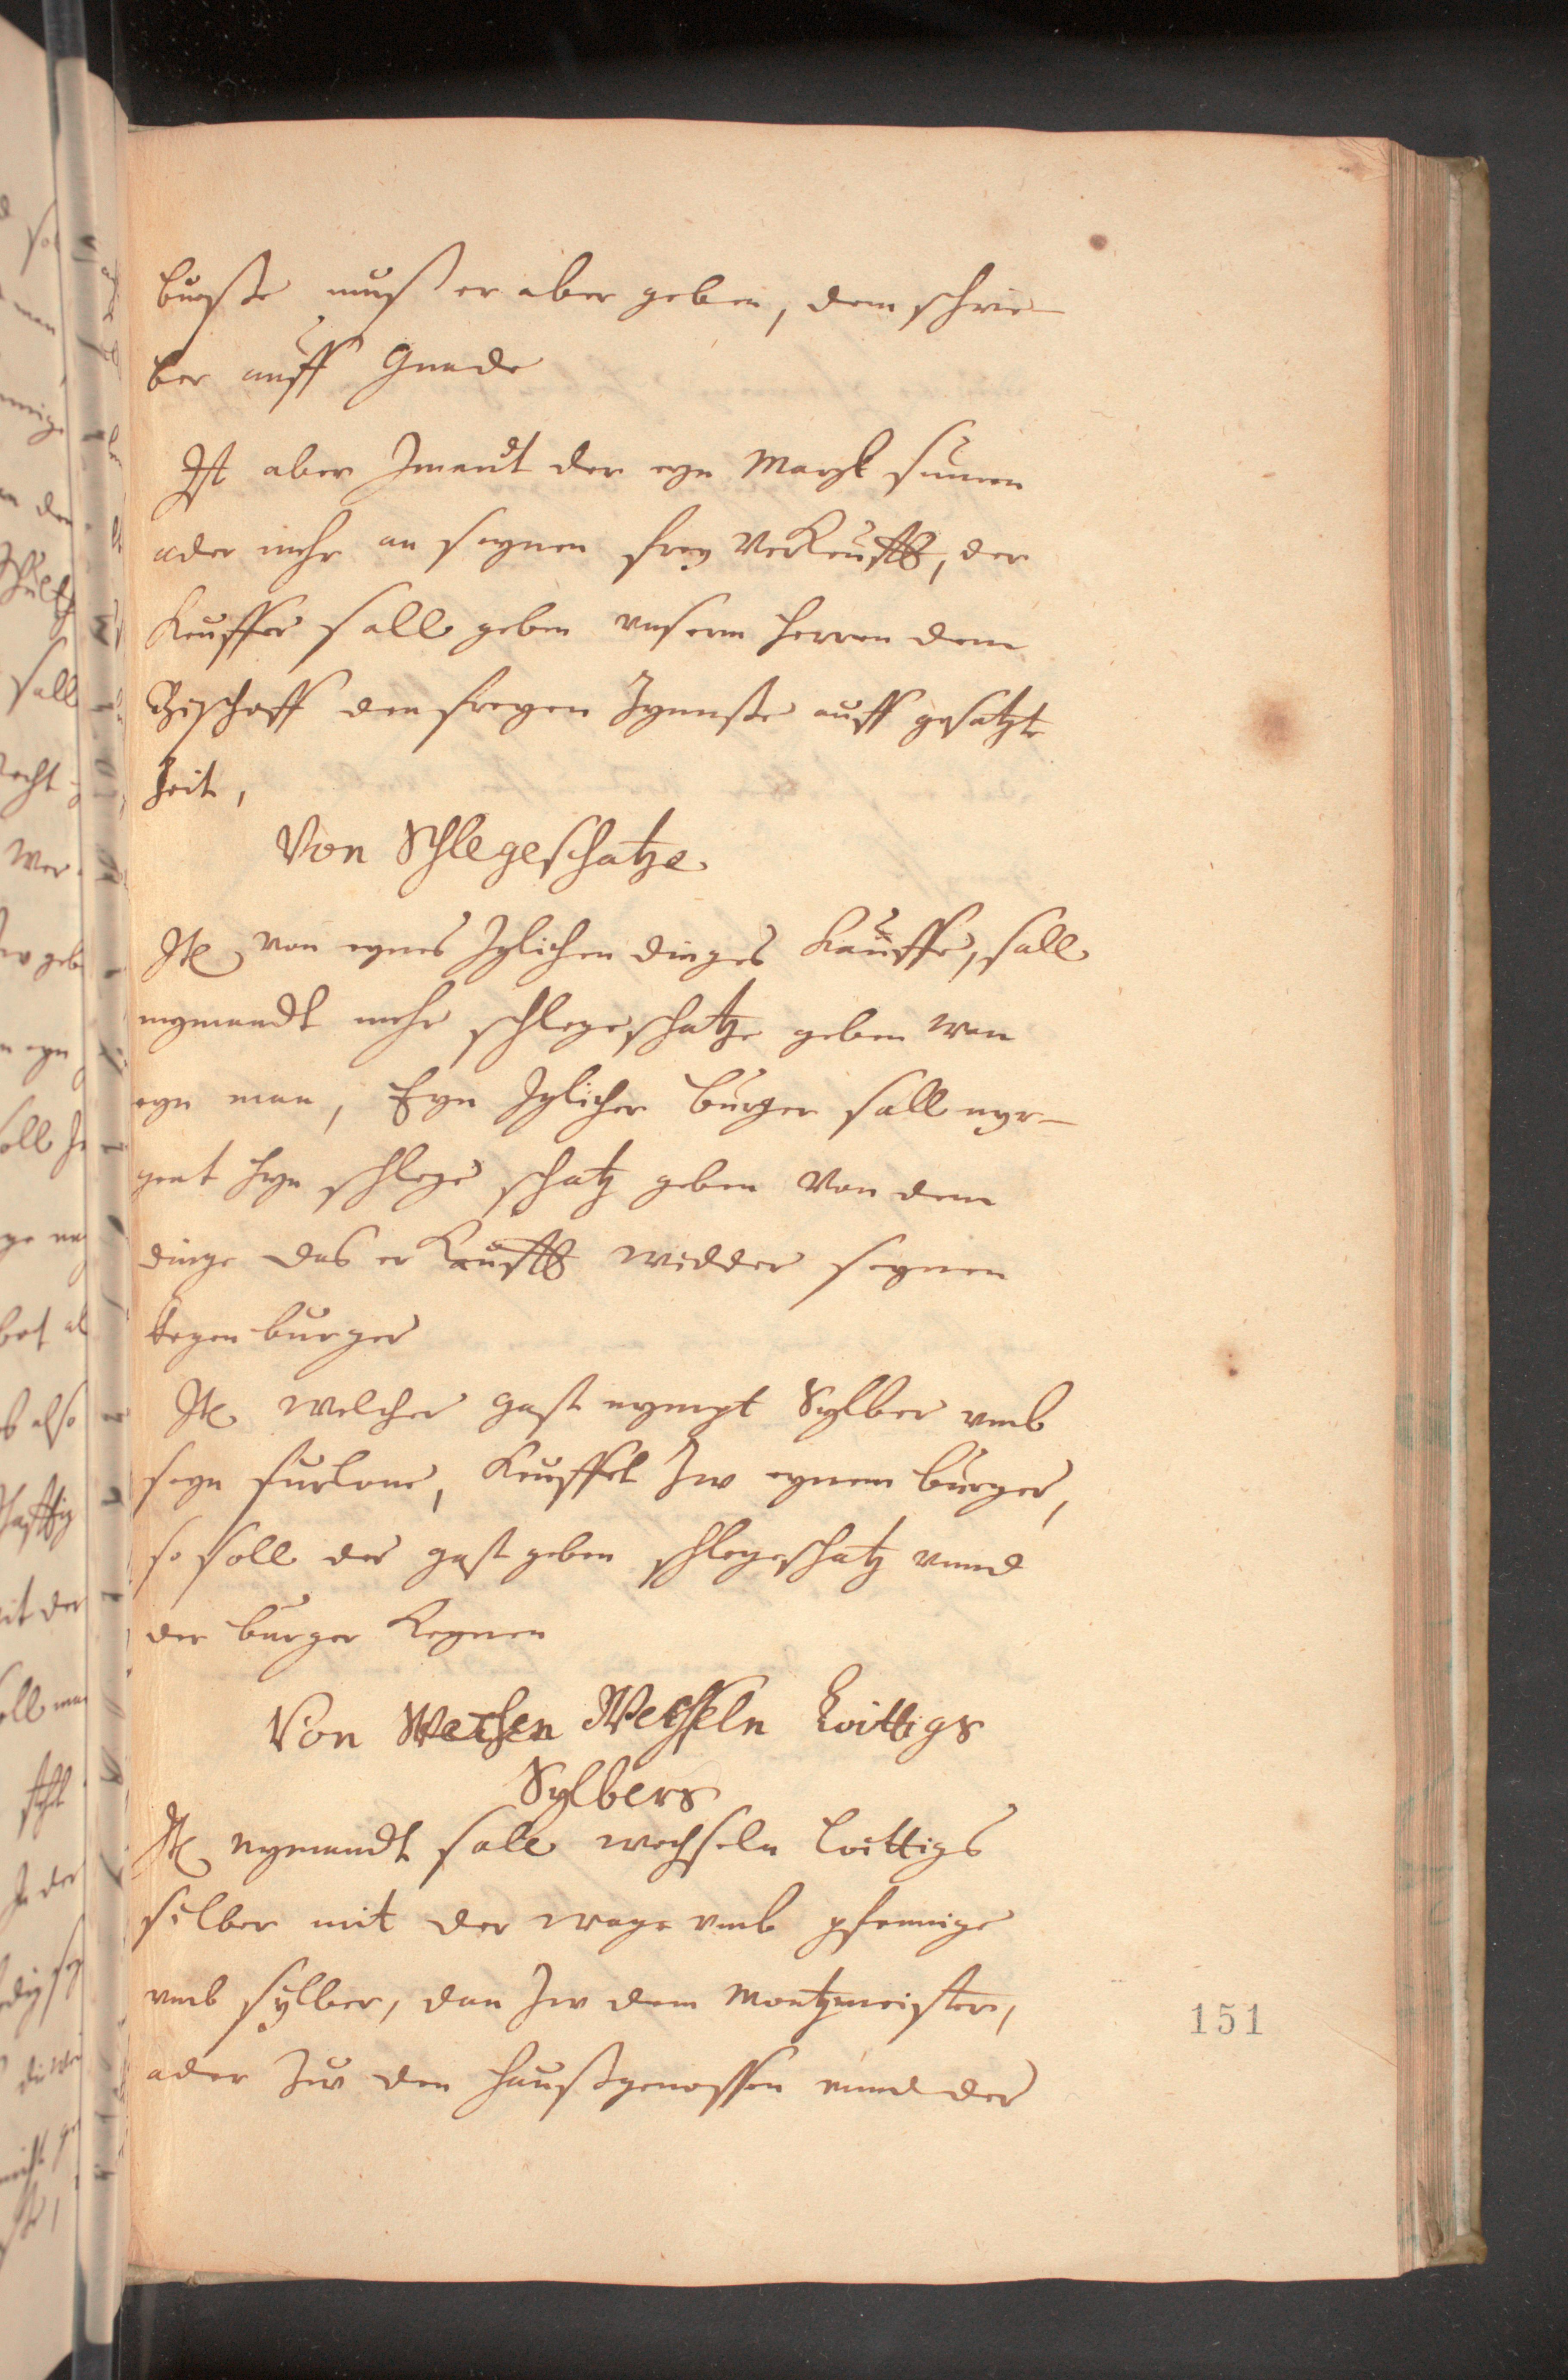 busse muß er aber geben, dem schrie-
ber auff Gnade
Ist aber Jmandt der eyn Margk summen
ader mehr an seynen frey Verkeufft, der
Keuffer sall geben vnserm herren dem
Bischoff den freyen Zynnße auff gesatzte
Zeit,
Von Schlegeschatze
Jt von eynes Jglichen dinges Kauffe, sall
nymandt mehr schlegeschatze geben wan
eyn man, Eyn Jglicher burger sall nyr-
gent hyn schlege schatz geben Von dem
dinge das er Keufft widder seynen
kegen burger
Jt welcher gast nympt Sylber vmb
seyn furlone, Keuffet Zw eynem burger,
so soll der gast geben schlegeschatz vnnd
der burger Keynen
Von Wechseln Loittigs
Sylbers
Jt nymandt sall wechseln loittigs
silber mit der wage vmb pfennige
vmb sylber, dan Zw dem Montzmeister,
ader Zw den haußgenossen vnnd der
151